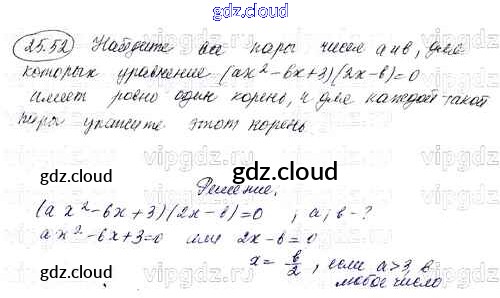 gdz.cloud
25.52 Найдите все пары чисел а и в, для
которых уравнение (ax²-6x+3)(2x-в)=0
имеет ровно один корень, и для каждой такой
пары укажите этот корень.
gdz.cloud
gdz.cloud
Решение:
(ax²-6x+3)(2x-в)=0 ; а; в-?
ax²-6x+3=0 или 2x-в=0
x= в/2, если а>3, в
любое число.
gdz.cloud